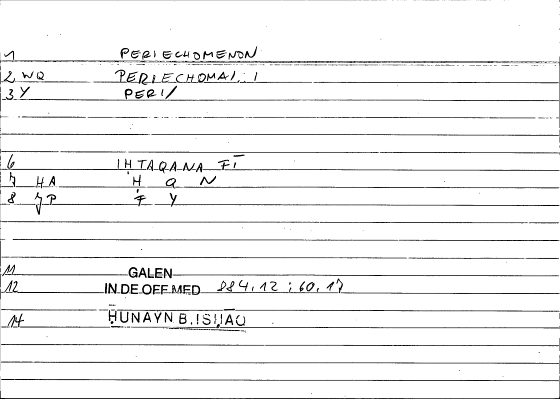 1 PERIECHOMENON
2 WQ PERIECHOMAI : I
3 Y PERI/
6 IḤTAQANA FĪ
7 HA Ḥ Q N
8 JP F Y
11 GALEN
12 IN DE OFF. MED 984.12 ; 60.17
14 ḤUNAYN B. ISḤĀQ